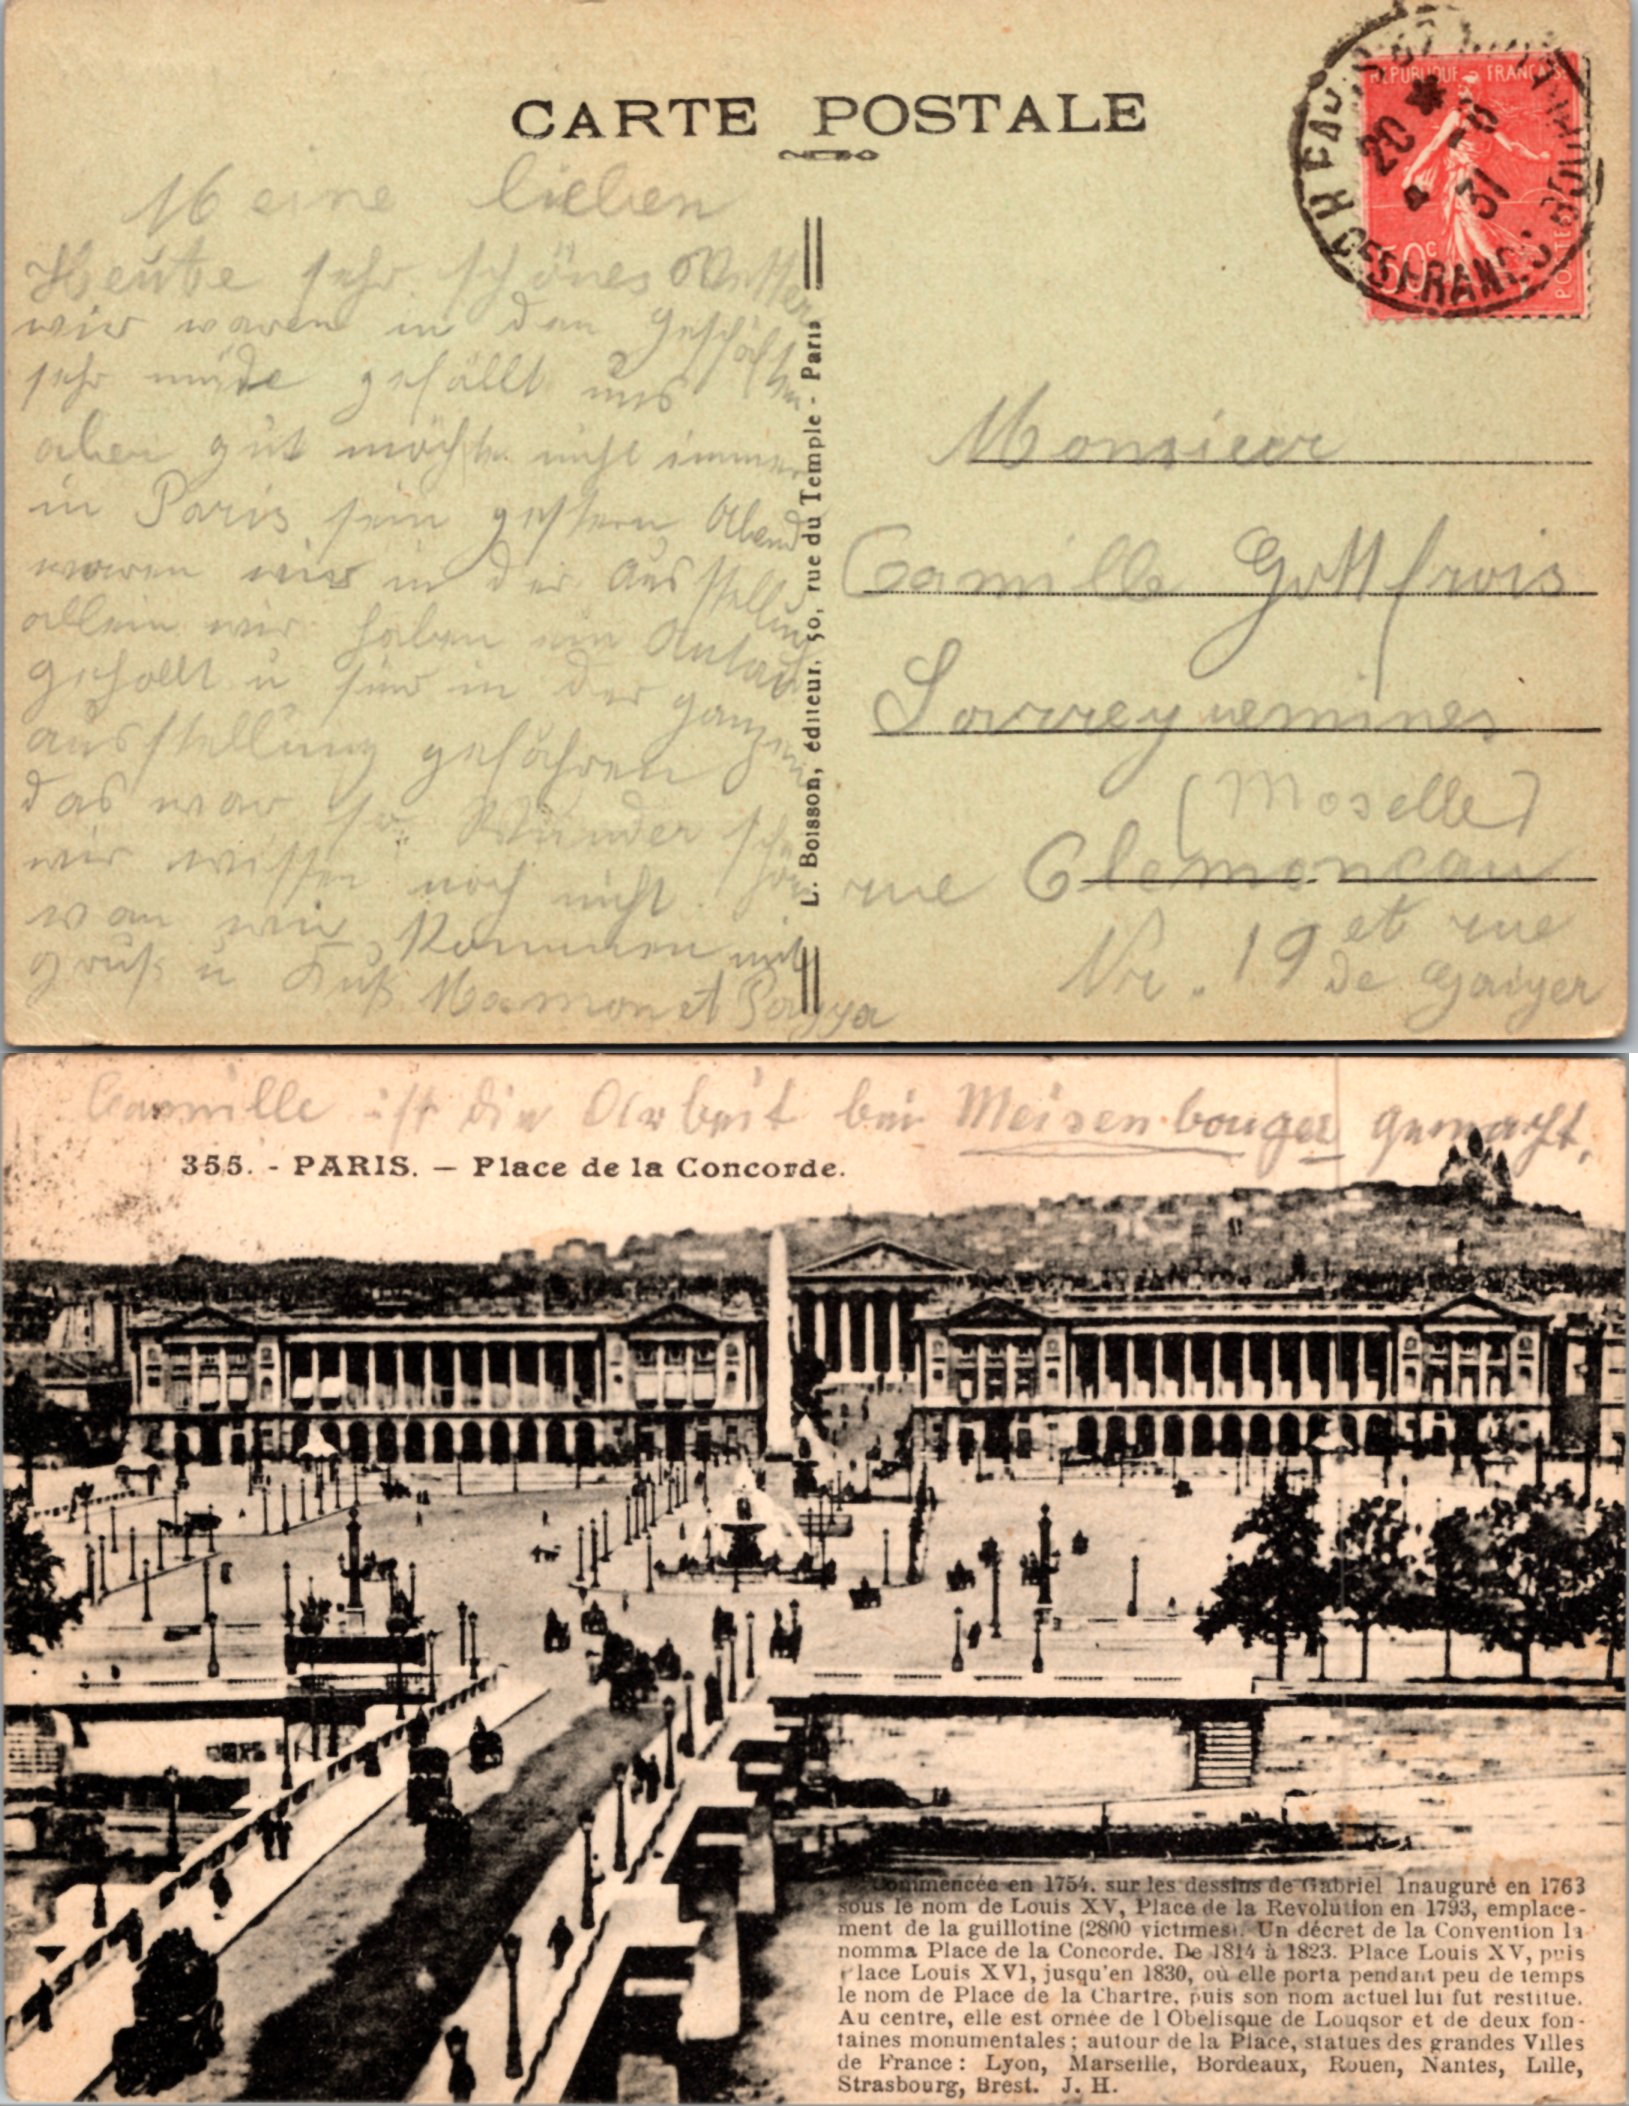 CARTE POSTALE
RÉPUBLIQUE FRANÇAISE
20
31
50c
POSTES
Meine lieben
Heute sehr schönes Wetter
wir waren in den Geschäften
sehr müde gefällt uns
aber gut möchte nicht immer
in Paris sein gestern Abend
waren wir in der Ausstellung
allein wir haben ein Auto
gehollt u sind in der ganzen
ausstellung gefahren
das war so Wunder schön
wir wissen noch nicht
wan wir Kommen mit
gruß u Kuß Maman et Pappa
L. Boisson, éditeur, 50, rue du Temple - Paris
Monsieur
Camille Gottfrois
Sarreguemines
(Moselle)
rue Clemencau
Nr. 19 et rue
de
Camille ist die Arbeit bei Meisenbouger gemacht,
355. - PARIS. — Place de la Concorde.
Commencée en 1754, sur les dessins de Gabriel Inauguré en 1763
sous le nom de Louis XV, Place de la Revolution en 1793, emplace-
ment de la guillotine (2800 victimes). Un décret de la Convention la
nomma Place de la Concorde. De 1814 à 1823. Place Louis XV, puis
Place Louis XVI, jusqu'en 1830, où elle porta pendant peu de temps
le nom de Place de la Chartre, puis son nom actuel lui fut restitue.
Au centre, elle est ornée de l Obelisque de Louqsor et de deux fon-
taines monumentales ; autour de la Place, statues des grandes Villes
de France : Lyon, Marseille, Bordeaux, Rouen, Nantes, Lille,
Strasbourg, Brest. J. H.